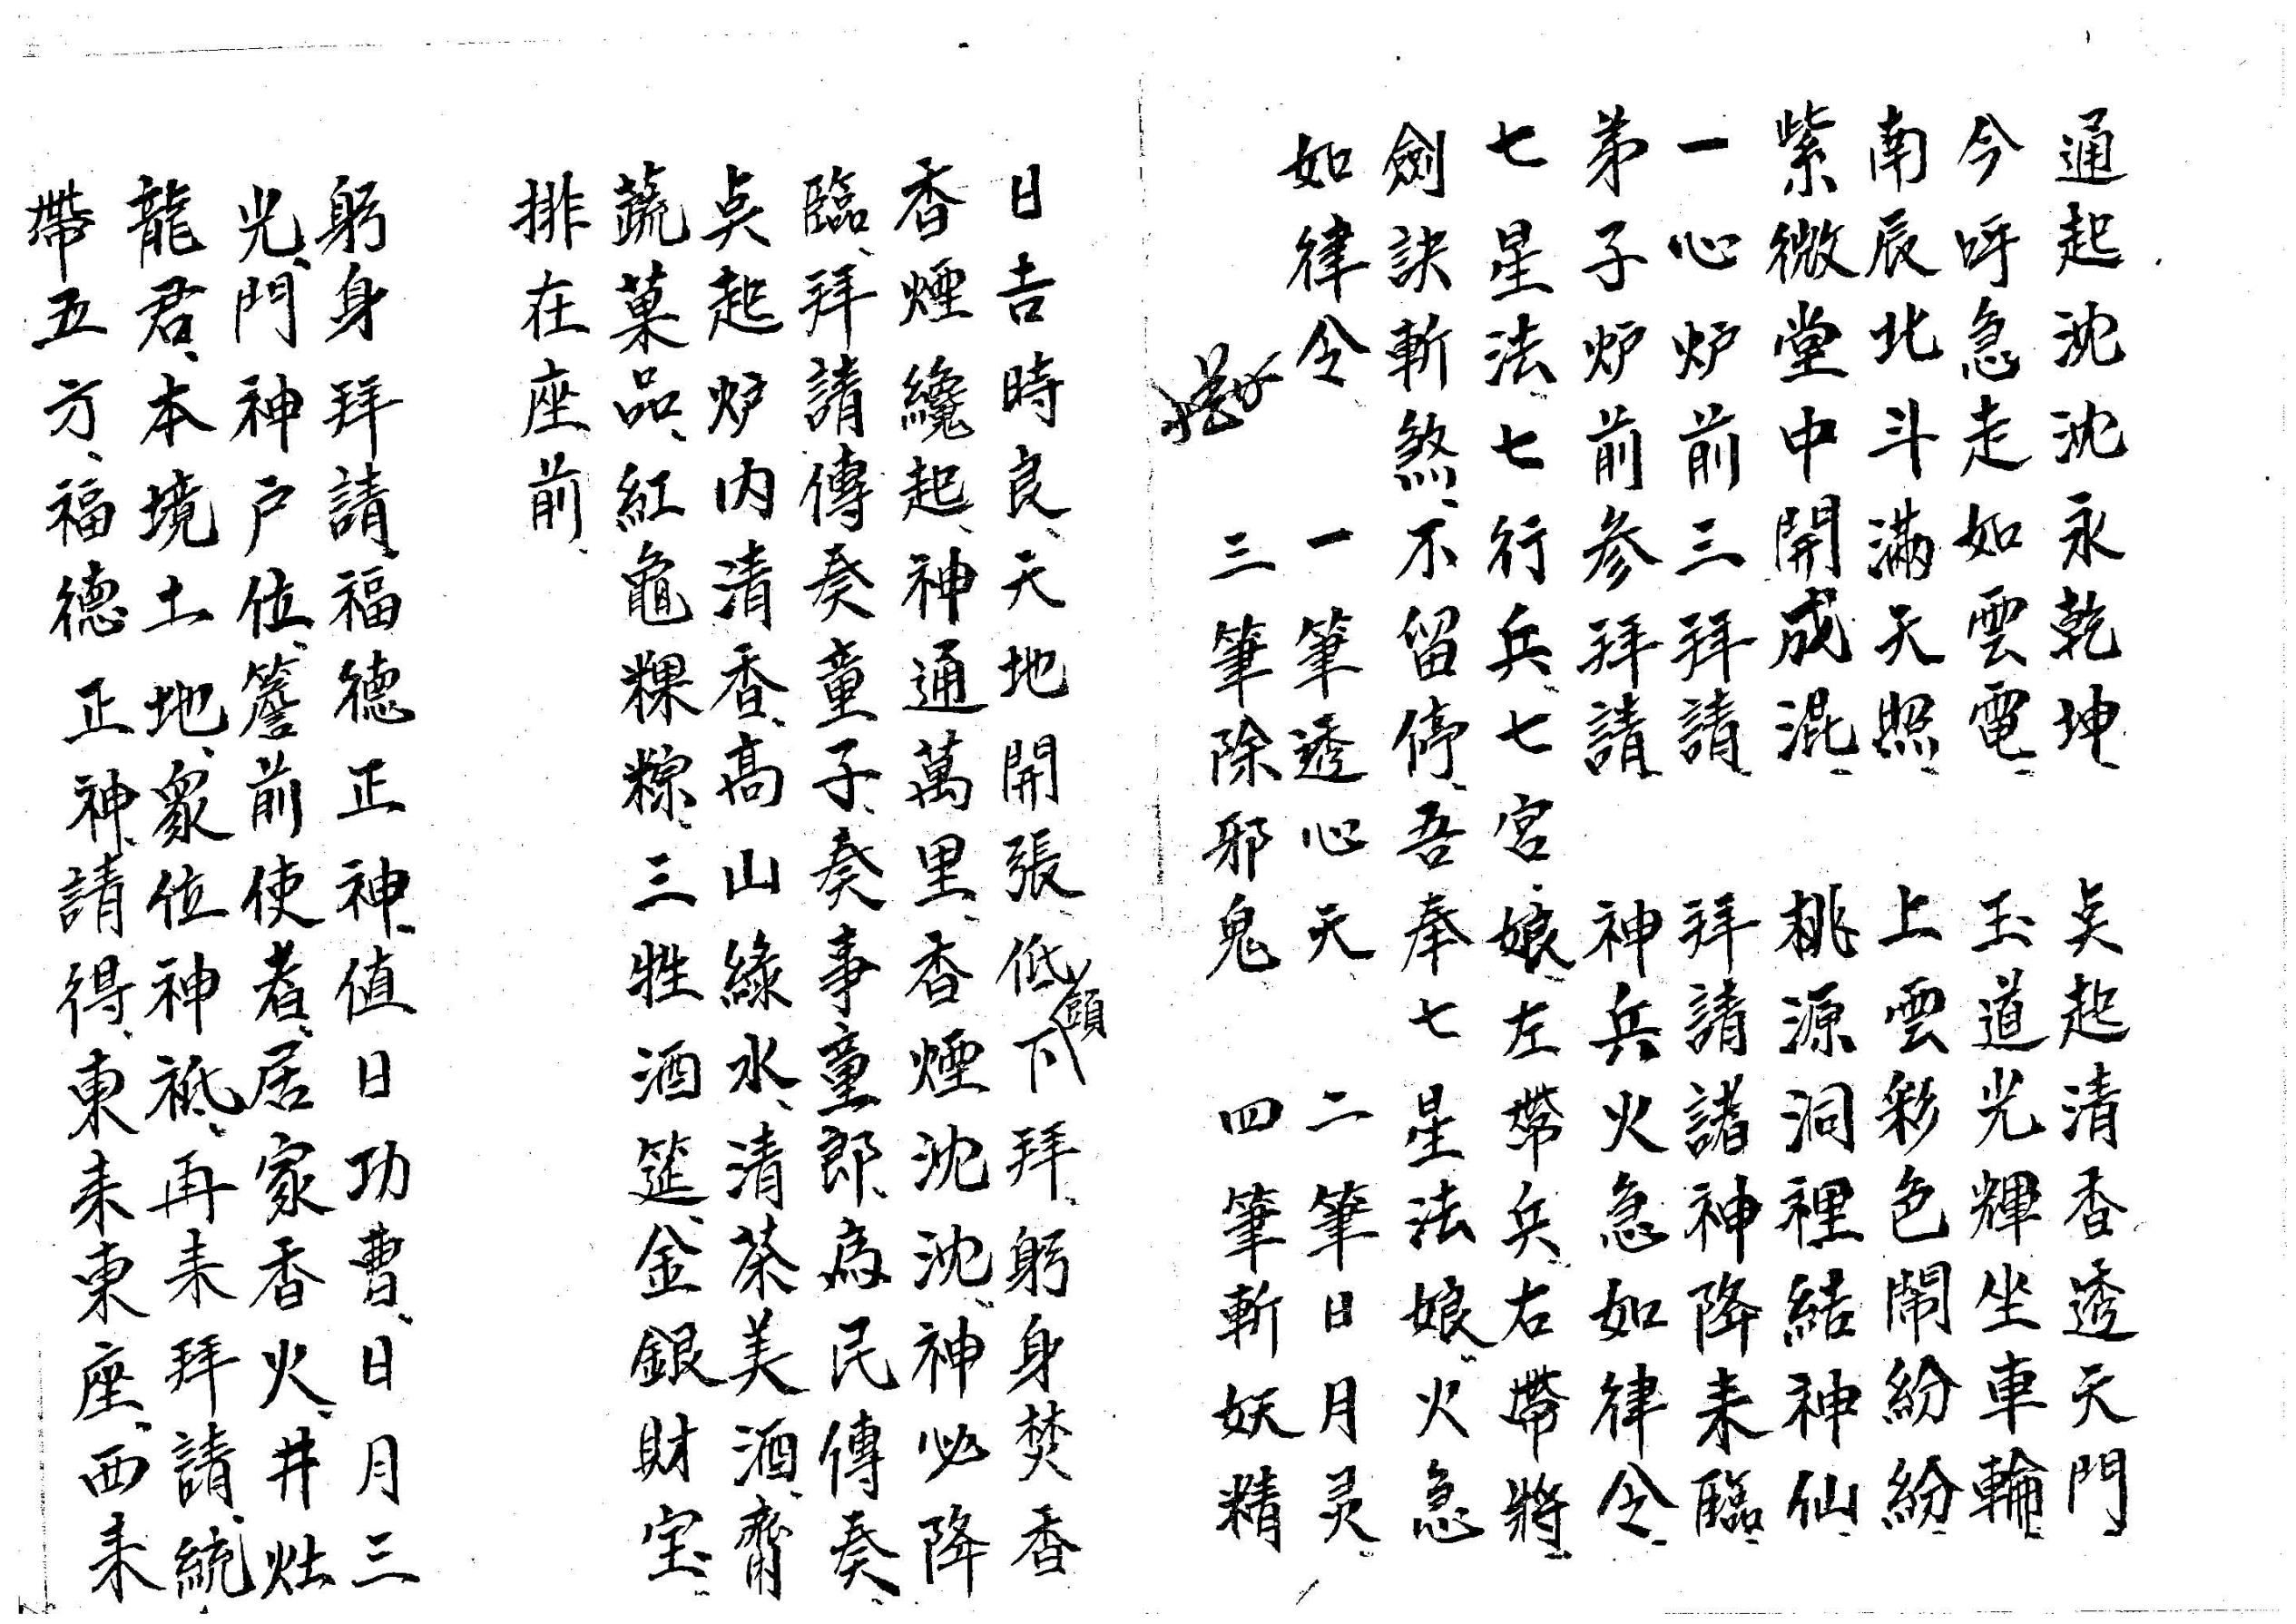 通起沈沈永乾坤、　点起清香透天門
今呼急走如雲電、　玉道光輝坐車輪
南辰北斗滿天照、　上雲彩色鬧紛紛、
紫微堂中開成混、　桃源洞裡結神仙、
一心炉前三拜請、　拜請諸神降来臨、
弟子炉前参拜請　神兵火急如律令、
七星法、七七行兵、七宮娘、左帶兵、右帶將、
劍訣斬煞、不留停、吾奉七星法娘、火急
如律令　一筆透心天　二筆日月灵、
三筆除邪鬼　四筆斬妖精
日吉時良、天地開張、低頭下拜、躬身焚香
香煙纔起、神通萬里、香煙沈沈、神必降
臨、拜請傳奏童子、奏事童郎、為民傳奏、
点起炉内清香、高山綠水、清茶美酒、齊
蔬菓品、紅龜粿粽、三牲酒筵、金銀財宝、
排在座前、
躬身拜請、福德正神、值日功曹、日月三
光、門神户位、簷前使者、居家香火、井灶
龍君、本境土地、眾位神祗、再来拜請、統
帶五方、福德正神、請得、東来東座、西来